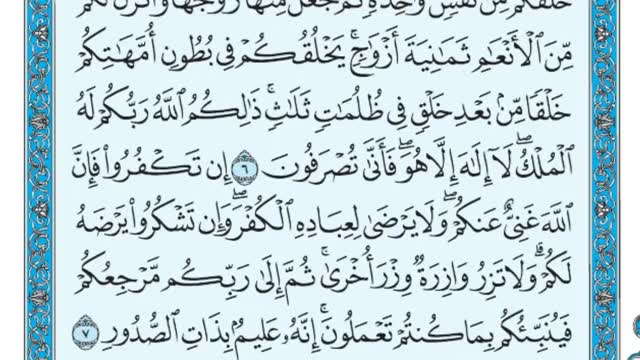 خَلَقَكُم مِّن نَّفْسٍ وَٰحِدَةٍ ثُمَّ جَعَلَ مِنْهَا زَوْجَهَا وَأَنزَلَ لَكُم
مِّنَ ٱلْأَنْعَٰمِ ثَمَٰنِيَةَ أَزْوَٰجٍۚ يَخْلُقُكُمْ فِي بُطُونِ أُمَّهَٰتِكُمْ
خَلْقًا مِّنۢ بَعْدِ خَلْقٍ فِي ظُلُمَٰتٍ ثَلَٰثٍۚ ذَٰلِكُمُ ٱللَّهُ رَبُّكُمْ لَهُ
ٱلْمُلْكُۖ لَآ إِلَٰهَ إِلَّا هُوَۖ فَأَنَّىٰ تُصْرَفُونَ ٦ إِن تَكْفُرُوا۟ فَإِنَّ
ٱللَّهَ غَنِيٌّ عَنكُمْۖ وَلَا يَرْضَىٰ لِعِبَادِهِ ٱلْكُفْرَۖ وَإِن تَشْكُرُوا۟ يَرْضَهُ
لَكُمْۗ وَلَا تَزِرُ وَازِرَةٌ وِزْرَ أُخْرَىٰۚ ثُمَّ إِلَىٰ رَبِّكُم مَّرْجِعُكُمْ
فَيُنَبِّئُكُم بِمَا كُنتُمْ تَعْمَلُونَۚ إِنَّهُۥ عَلِيمٌۢ بِذَاتِ ٱلصُّدُورِ ٧